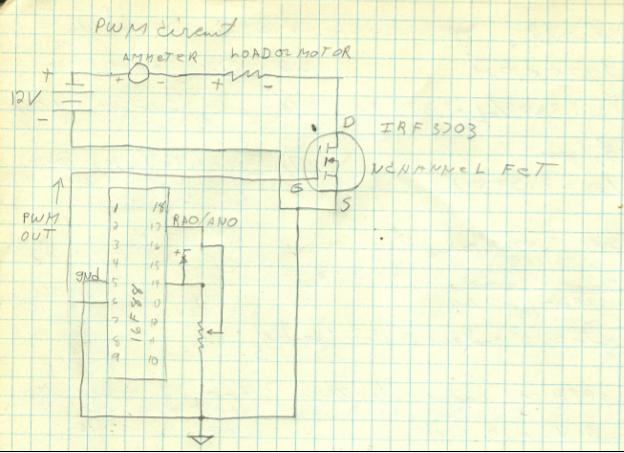 PWM circuit
AMMETER
LOAD OR MOTOR
+
+ -
+ -
12V
-
D
IRF 3703
N CHANNEL FET
G
S
PWM
OUT
1 18
2 17
RA0/AN0
3 16
+5
4 15
gnd
5 14
6 13
7 12
8 11
9 10
16F88